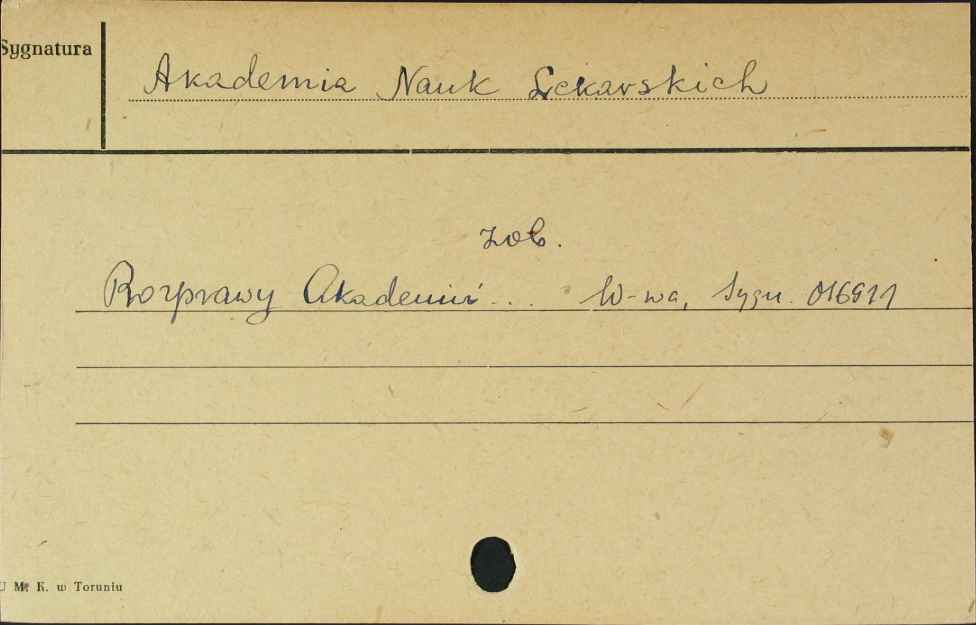 Sygnatura
Akademia Nauk Lekarskich
zob.
Rozprawy Akademii... W-wa, Sygn. 016911
U M. K. w Toruniu